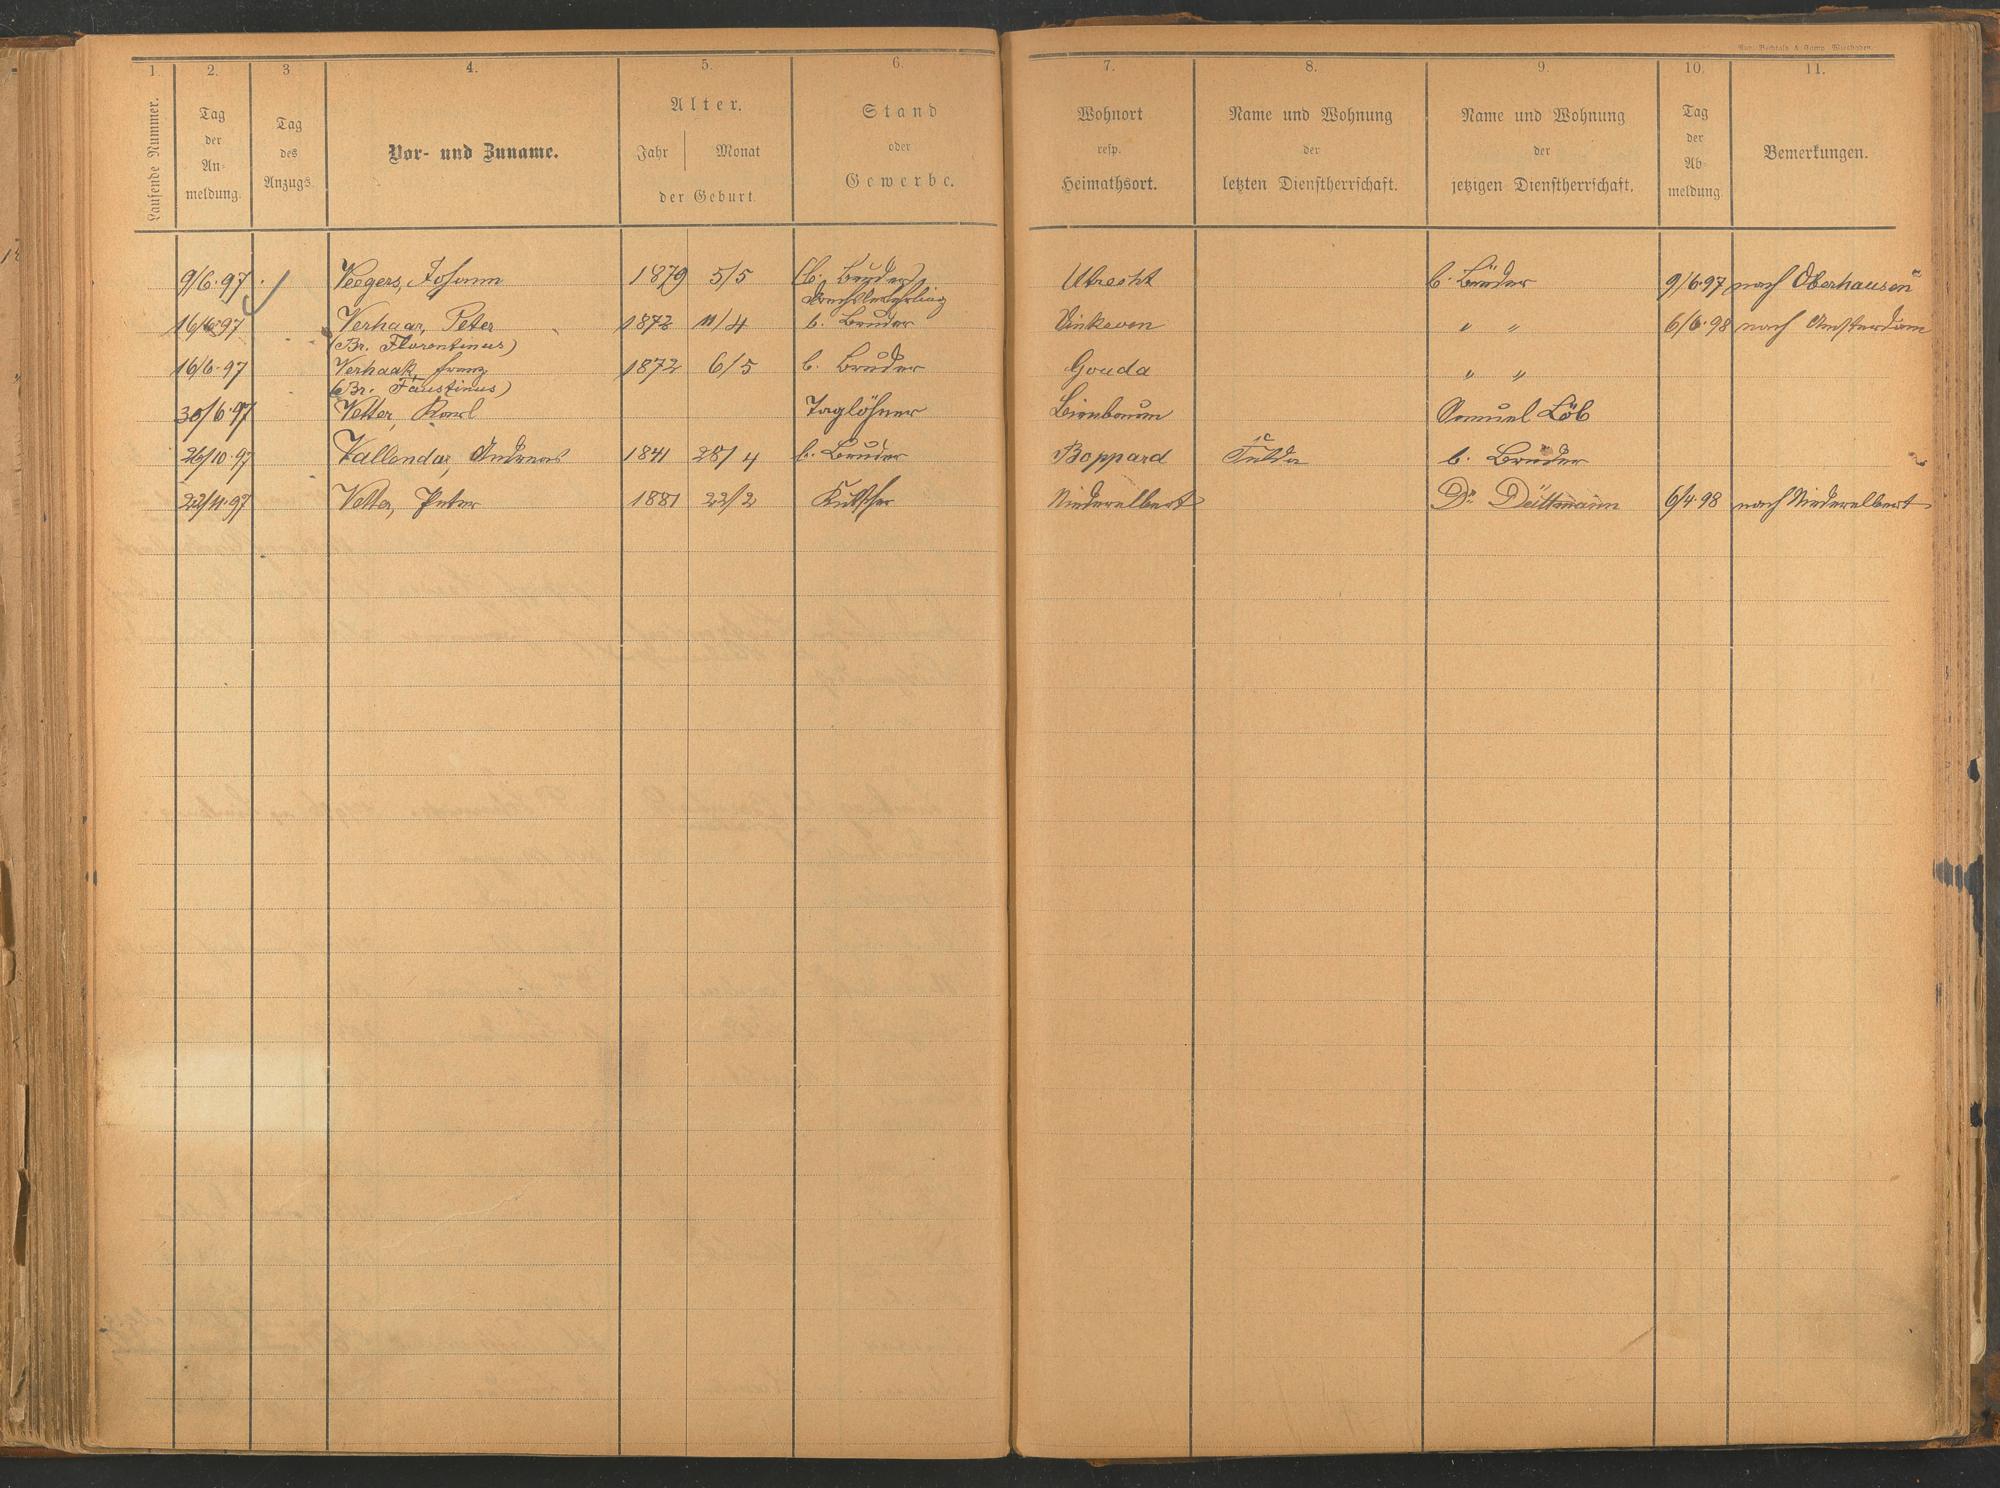 Aug. Bechtold & Comp. Wiesbaden.
1. 2. 3. 4. 5. 6. 7. 8. 9. 10. 11.
Laufende Nummer.
Tag der Anmeldung.
Tag des Anzugs.
Vor- und Zuname.
Alter.
Jahr Monat
der Geburt.
Stand oder Gewerbe.
Wohnort resp. Heimathsort.
Name und Wohnung der letzten Dienstherrschaft.
Name und Wohnung der jetzigen Dienstherrschaft.
Tag der Abmeldung.
Bemerkungen.
9/6.97 Veegers, Johann 1879 5/5 (b. Bruder) Utrecht b. Brüder 9/6.97 nach Oberhausen
16/6.97 Verhaar, Peter 1872 11/4 b. Bruder Vinkeven " " 6/6.98 nach Amsterdam
(Br. Florentinus)
16/6.97 Verhaak, Franz 1872 6/5 b. Bruder Gouda " "
(Br. Faustinus)
30/6.97 Vetter, Karl Taglöhner Birnbaum Samuel Löb
26/10.97 Vallendar, Andreas 1841 28/4 b. Bruder Boppard Fulda b. Brüder
22/11.97 Vetter, Peter 1881 22/2 Kutscher Niederelbert Dr. Düttmann 6/4.98 nach Niederelbert